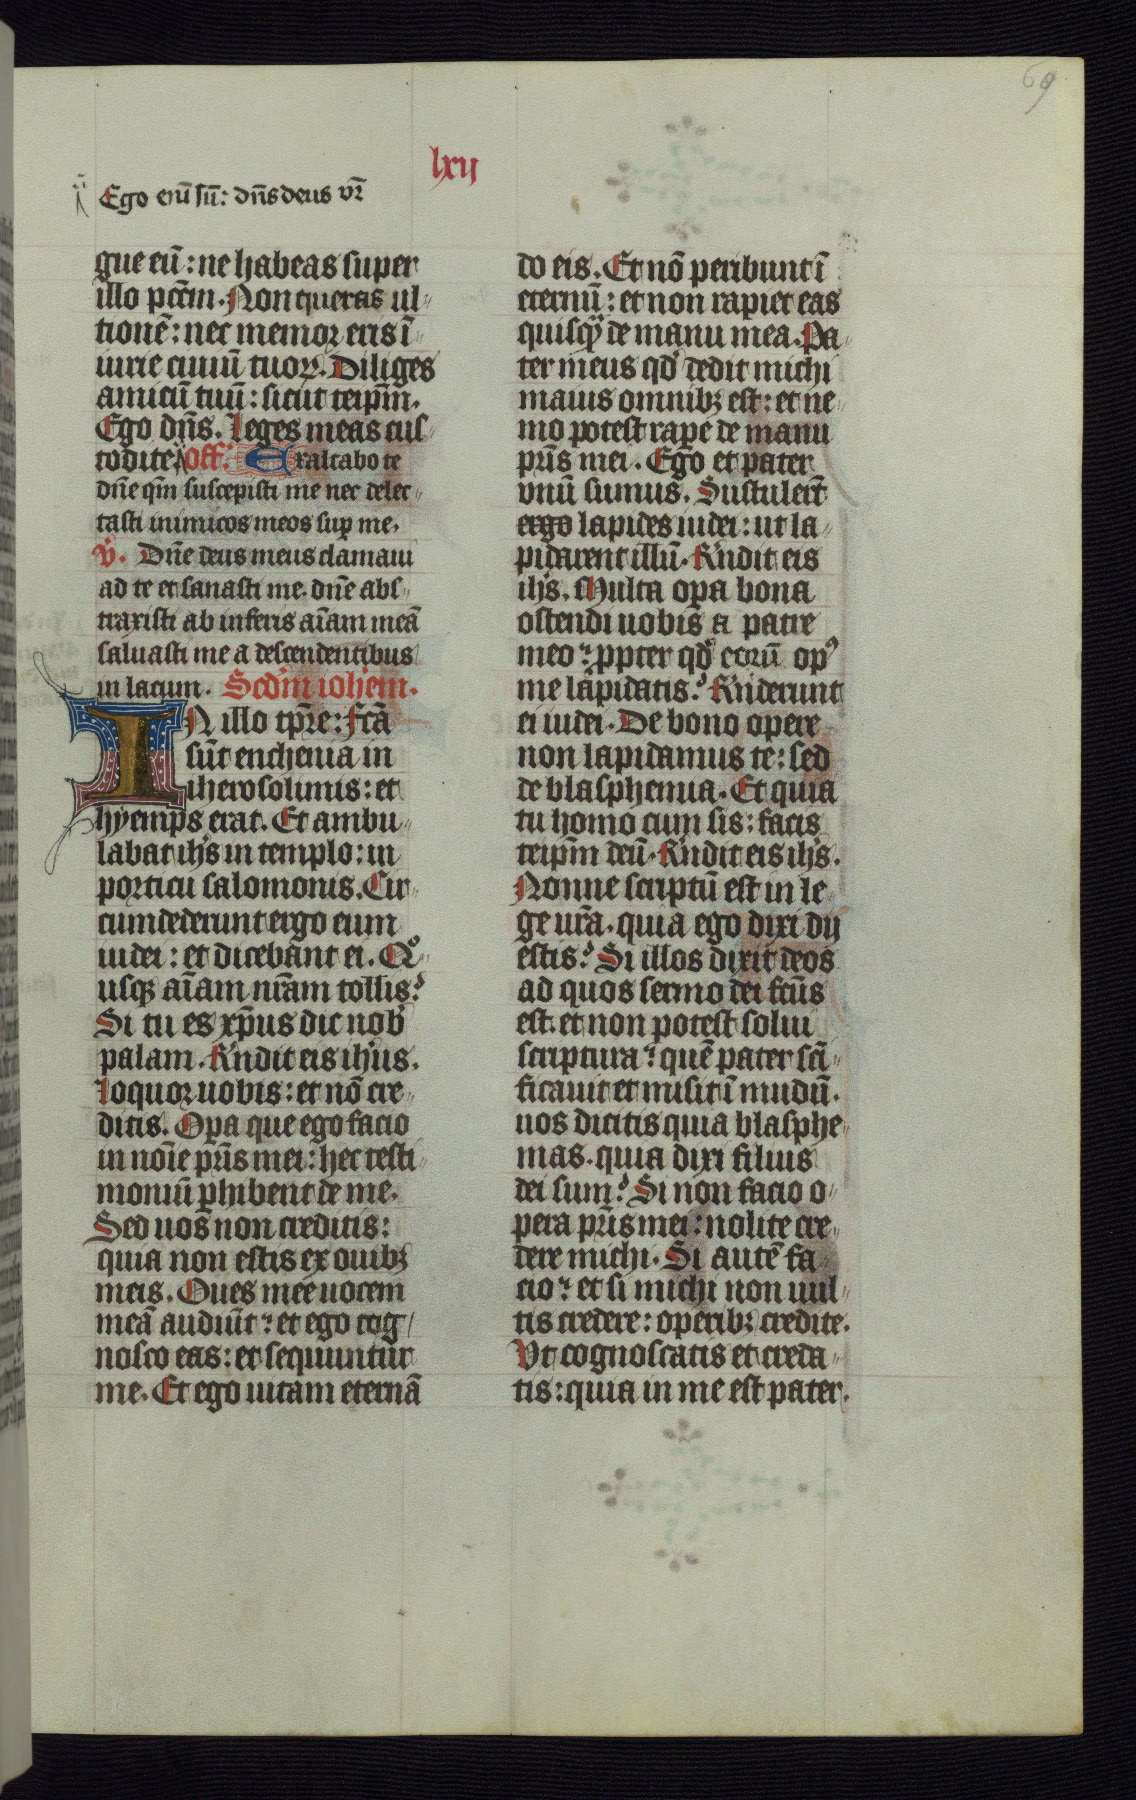 69
lxij
Ego em̄ sū: dn̄s deus vr̄
gue eū: ne habeas super
illo pctm̄. Non queras ul-
tionē: nec memor eris ī
iurie ciuiū tuoꝝ. Diliges
amicū tuū: sicut teip̄m.
Ego dn̄s. Leges meas cus-
todite off. Exaltabo te
dn̄e qm̄ suscepisti me nec delec-
tasti inimicos meos sup̄ me.
v̄. Dn̄e deus meus clamaui
ad te et sanasti me. dn̄e abs-
traxisti ab inferis aīam meā
saluasti me a descendentibus
in lacum. Scdm̄ iohem̄.
IN illo tp̄re: Fc̄a
sūt enchenia in
iherosolimis: et
hyemps erat. Et ambu-
labat ih̄s in templo: in
porticu salomonis. Cir-
cumdederunt ergo eum
iudei: et dicebant ei. Qͦ-
usqꝫ aīam nr̄am tollis?
Si tu es xp̄us dic nob̄
palam. Rn̄dit eis ih̄us.
Loquor uobis: et nō cre-
ditis. Oꝑa que ego facio
in noīe pr̄is mei: hec testi-
moniū ꝑhibent de me.
Sed uos non creditis:
quia non estis ex ouibꝫ
meis. Oues mee uocem
meā audiūt: et ego cog-
nosco eas: et sequuntur
me. Et ego uitam eternā
do eis. Et nō peribunt ī
eternū: et non rapiet eas
quisqꝫ̄ de manu mea. Pa-
ter meus qd̄ dedit michi
maius omnibꝫ est: et ne-
mo potest raꝑe de manu
pr̄is mei. Ego et pater
vnū sumus. Sustuler̄t
ergo lapides iudei: ut la-
pidarent illū. Rn̄dit eis
ih̄s. Multa oꝑa bona
ostendi uobis a patre
meo: ꝓpter qd̄ eorū opꝰ
me lapidatis? Rn̄derunt
ei iudei. De bono opere
non lapidamus te: sed
de blasphemia. Et quia
tu homo cum sis: facis
teip̄m deū. Rn̄dit eis ih̄s.
Nonne scriptū est in le-
ge ur̄a. quia ego dixi dij
estis? Si illos dixit deos
ad quos sermo dei fc̄us
est. et non potest solui
scriptura: quē pater sc̄i-
ficauit et misit ī mūdū.
uos dicitis quia blasphe-
mas. quia dixi filius
dei sum? Si non facio o-
pera pr̄is mei: nolite cre-
dere michi. Si autē fa-
cio: et si michi non uul-
tis credere: operibꝫ credite.
Vt cognoscatis et creda-
tis: quia in me est pater.